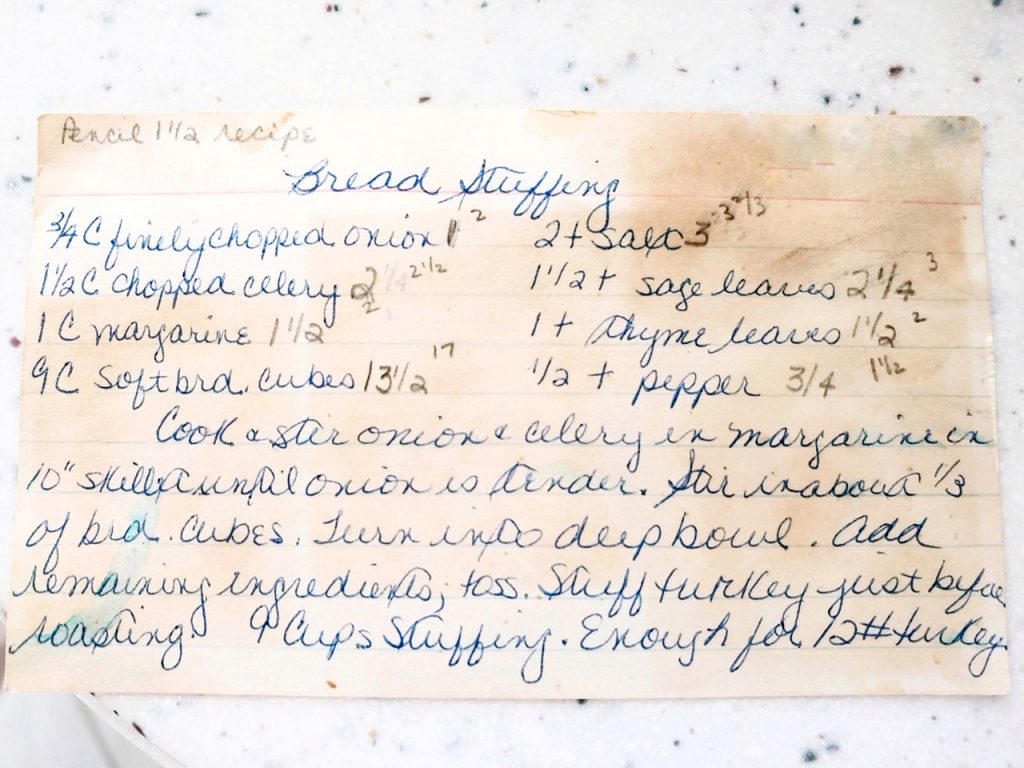 Pencil 1 1/2 recipe
Bread Stuffing
3/4 C finely chopped onion 1 2 2 t salt 3 3 2/3
1 1/2 C chopped celery 2 1/4 2 1/2 1 1/2 t sage leaves 2 1/4 3
1 C margarine 1 1/2 2 1 t thyme leaves 1 1/2 2
9 C Soft brd. cubes 13 1/2 17 1/2 t pepper 3/4 1 1/2
Cook & stir onion & celery in margarine in
10" skillet until onion is tender. Stir in about 1/3
of brd. cubes. Turn into deep bowl. Add
remaining ingredients, toss. Stuff turkey just before
roasting. 9 Cups Stuffing. Enough for 12# turkey